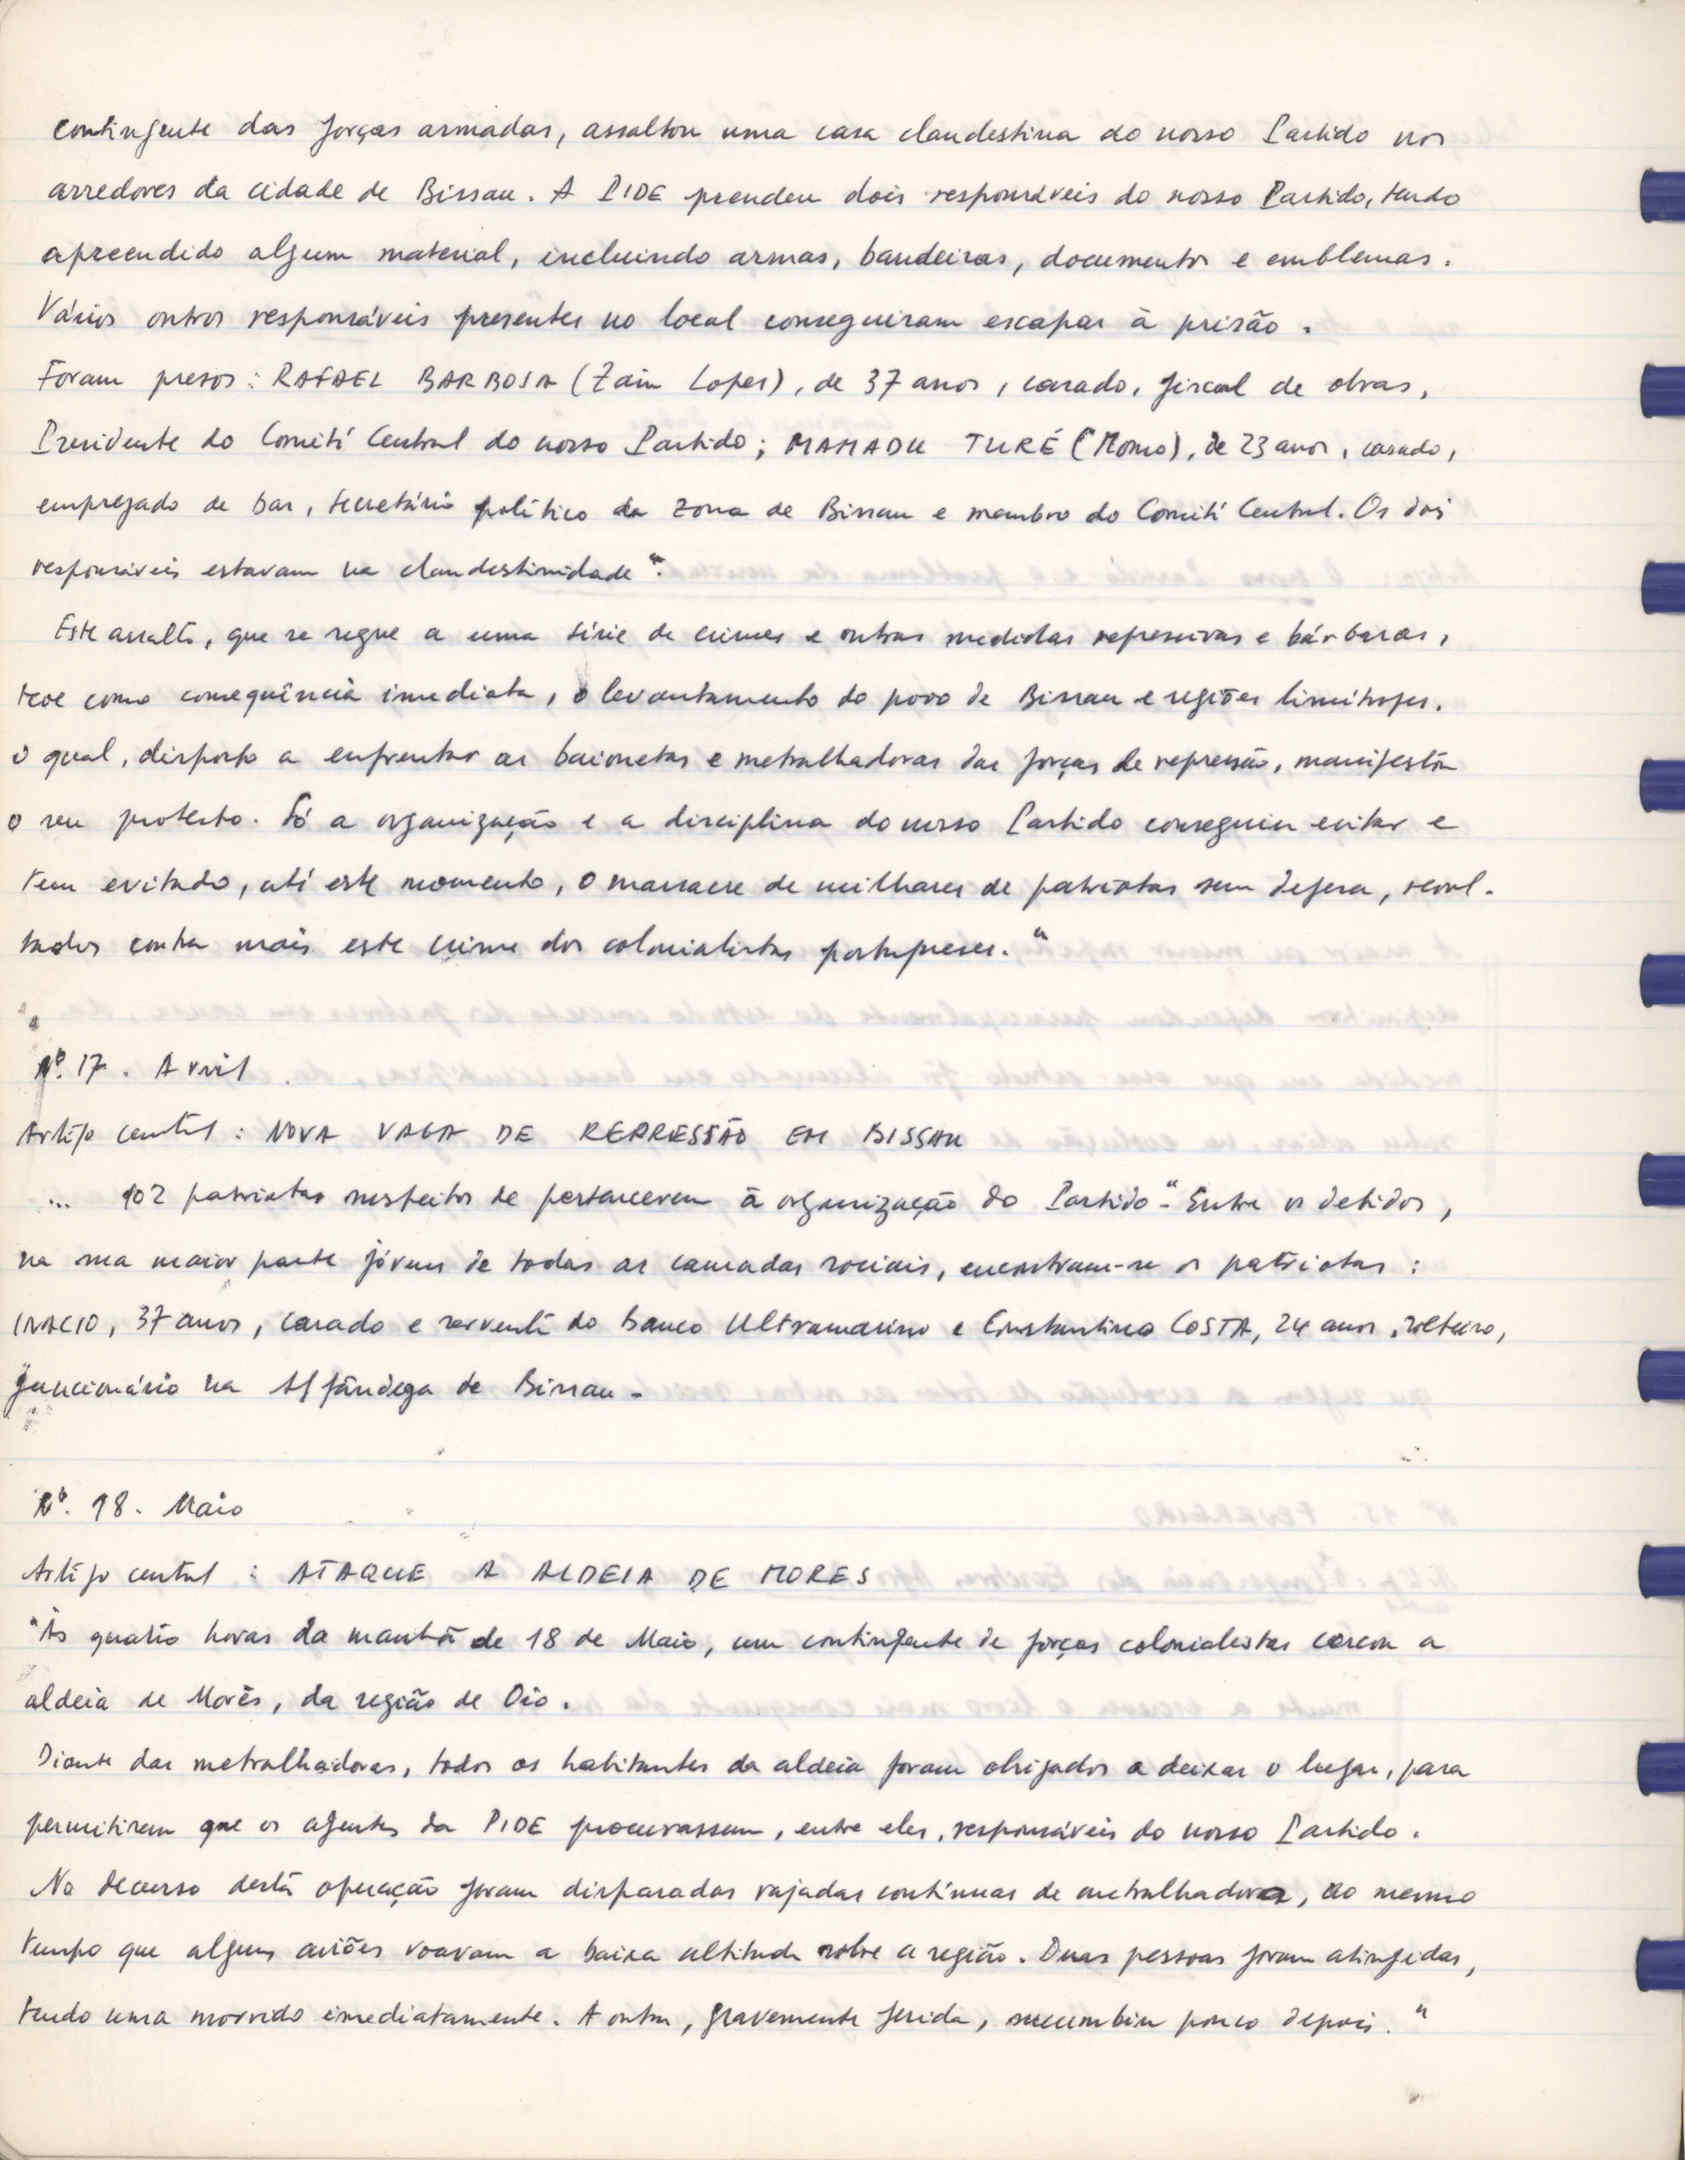 contingente das forças armadas, assaltou uma casa clandestina do nosso Partido nos
arredores da cidade de Bissau. A PIDE prendeu dois responsáveis do nosso Partido, tendo
apreendido algum material, incluindo armas, bandeiras, documentos e emblemas.
Vários outros responsáveis presentes no local conseguiram escapar à prisão.
Foram presos: RAFAEL BARBOSA (Zain Lopes), de 37 anos, casado, fiscal de obras,
Presidente do Comité Central do nosso Partido; MAMADU TURÉ (Momo), de 23 anos, casado,
empregado de bar, secretário político da zona de Bissau e membro do Comité Central. Os dois
responsáveis estavam na clandestinidade".
Este assalto, que se segue a uma série de crimes e outras medidas repressivas e bárbaras,
teve como consequência imediata, o levantamento do povo de Bissau e regiões limítrofes.
o qual, disposto a enfrentar as baionetas e metralhadoras das forças de repressão, manifestou
o seu protesto. Só a organização e a disciplina do nosso Partido conseguiu evitar e
tem evitado, até este momento, o massacre de milhares de patriotas sem defesa, revol-
tados contra mais este crime dos colonialistas portugueses."
Nº. 17. Avril
Artigo central: NOVA VAGA DE REPRESSÃO EM BISSAU
... 102 patriotas suspeitos de pertencerem à organização do Partido". Entre os detidos,
na sua maior parte jóvens de todas as camadas sociais, encontram-se os patriotas:
INACIO, 37 anos, casado e servente do banco Ultramarino e Constantino COSTA, 24 anos, solteiro,
funcionário na Alfândega de Bissau.
Nº. 18. Maio
Artigo central: ATAQUE A ALDEIA DE MORES
"Às quatro horas da manhã de 18 de Maio, um contingente de forças colonialistas cercou a
aldeia de Morés, da região de Oio.
Diante das metralhadoras, todos os habitantes da aldeia foram obrigados a deixar o lugar, para
permitirem que os agentes da PIDE procurassem, entre eles, responsáveis do nosso Partido.
No decurso desta operação foram disparadas rajadas contínuas de metralhadora, ao mesmo
tempo que alguns aviões voavam a baixa altitude sobre a região. Duas pessoas foram atingidas,
tendo uma morrido imediatamente. A outra, gravemente ferida, sucumbiu pouco depois."